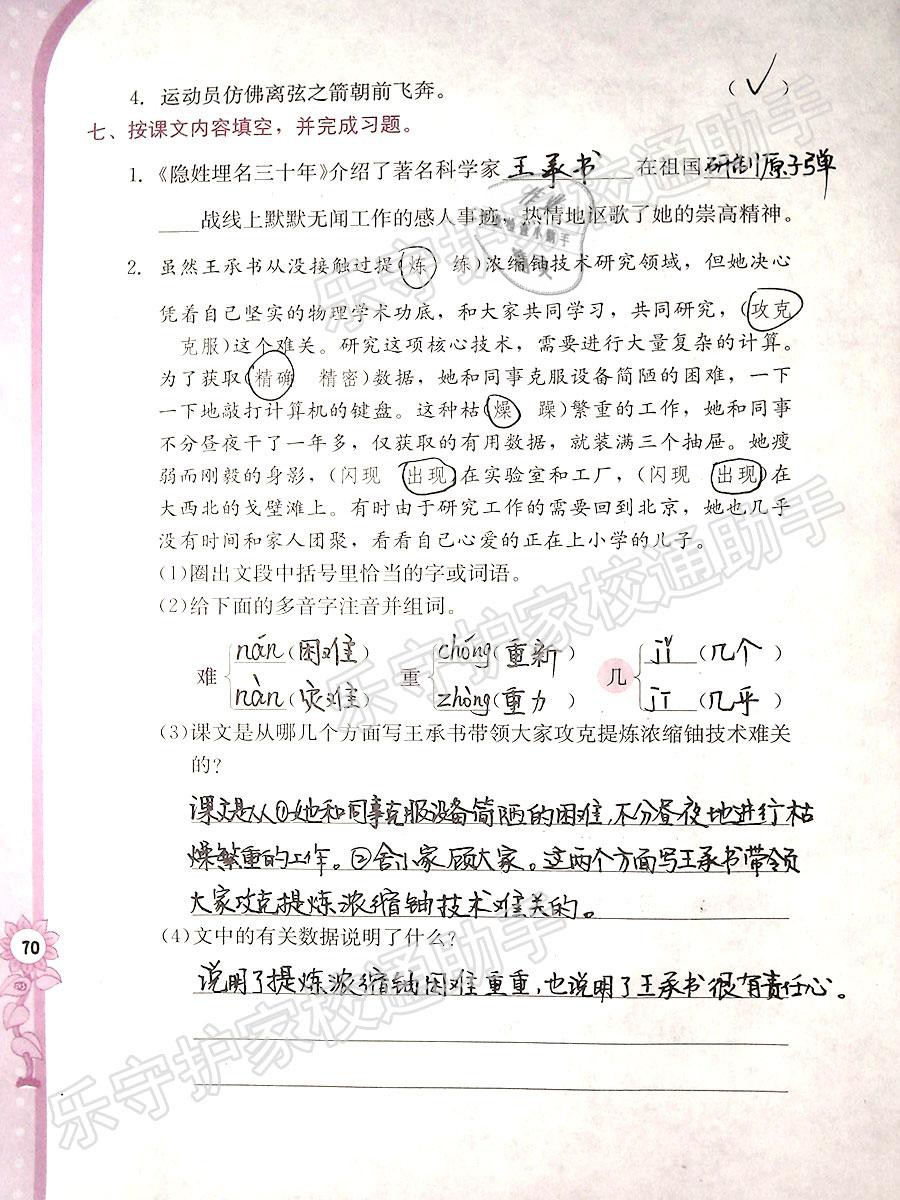 4. 运动员仿佛离弦之箭朝前飞奔。 (√)
七、按课文内容填空，并完成习题。
1. 《隐姓埋名三十年》介绍了著名科学家 王承书 在祖国 研制原子弹
战线上默默无闻工作的感人事迹，热情地讴歌了她的崇高精神。
2. 虽然王承书从没接触过提(炼 练)浓缩铀技术研究领域，但她决心
凭着自己坚实的物理学术功底，和大家共同学习，共同研究，(攻克
克服)这个难关。研究这项核心技术，需要进行大量复杂的计算。
为了获取(精确 精密)数据，她和同事克服设备简陋的困难，一下
一下地敲打计算机的键盘。这种枯(燥 躁)繁重的工作，她和同事
不分昼夜干了一年多，仅获取的有用数据，就装满三个抽屉。她瘦
弱而刚毅的身影，(闪现 出现)在实验室和工厂，(闪现 出现)在
大西北的戈壁滩上。有时由于研究工作的需要回到北京，她也几乎
没有时间和家人团聚，看看自己心爱的正在上小学的儿子。
(1)圈出文段中括号里恰当的字或词语。
(2)给下面的多音字注音并组词。
nán(困难) chóng(重新) jǐ(几个)
难 重 几
nàn(灾难) zhòng(重力) jī(几乎)
(3)课文是从哪几个方面写王承书带领大家攻克提炼浓缩铀技术难关
的？
课文是从①她和同事克服设备简陋的困难,不分昼夜地进行枯
燥繁重的工作。②舍小家顾大家。这两个方面写王承书带领
大家攻克提炼浓缩铀技术难关的。
(4)文中的有关数据说明了什么？
说明了提炼浓缩铀困难重重,也说明了王承书很有责任心。
70
乐守护家校通助手
乐守护家校通助手
乐守护家校通助手